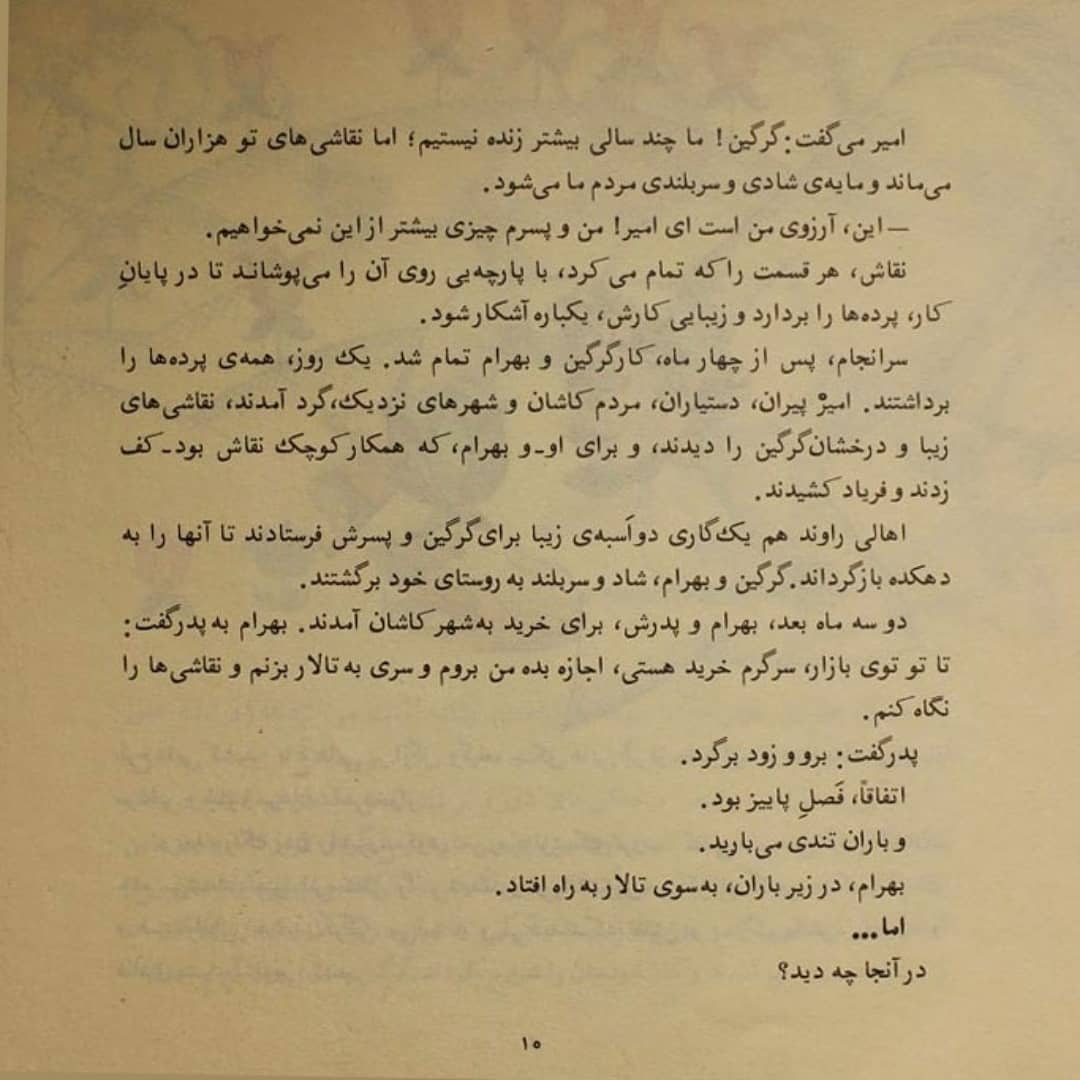 امیر می‌گفت: گرگین! ما چند سالی بیشتر زنده نیستیم؛ اما نقاشی‌های تو هزاران سال
می‌ماند و مایه‌ی شادی و سربلندی مردم ما می‌شود.
— این، آرزوی من است ای امیر! من و پسرم چیزی بیشتر از این نمی‌خواهیم.
نقاش، هر قسمت را که تمام می‌کرد، با پارچه‌یی روی آن را می‌پوشاند تا در پایانِ
کار، پرده‌ها را بردارد و زیبایی کارش، یکباره آشکار شود.
سرانجام، پس از چهار ماه، کار گرگین و بهرام تمام شد. یک روز، همه‌ی پرده‌ها را
برداشتند. امیرْ پیران، دستیاران، مردم کاشان و شهرهای نزدیک، گرد آمدند، نقاشی‌های
زیبا و درخشان گرگین را دیدند، و برای او ـ و بهرام، که همکار کوچک نقاش بود ـ کف
زدند و فریاد کشیدند.
اهالی راوند هم یک گاری دو اَسبه‌ی زیبا برای گرگین و پسرش فرستادند تا آنها را به
دهکده بازگرداند. گرگین و بهرام، شاد و سربلند به روستای خود برگشتند.
دو سه ماه بعد، بهرام و پدرش، برای خرید به شهر کاشان آمدند. بهرام به پدر گفت:
تا تو توی بازار، سرگرم خرید هستی، اجازه بده من بروم و سری به تالار بزنم و نقاشی‌ها را
نگاه کنم.
پدر گفت: برو و زود برگرد.
اتفاقاً، فَصلِ پاییز بود.
و باران تندی می‌بارید.
بهرام، در زیر باران، به سوی تالار به راه افتاد.
اما...
در آنجا چه دید؟
۱۰